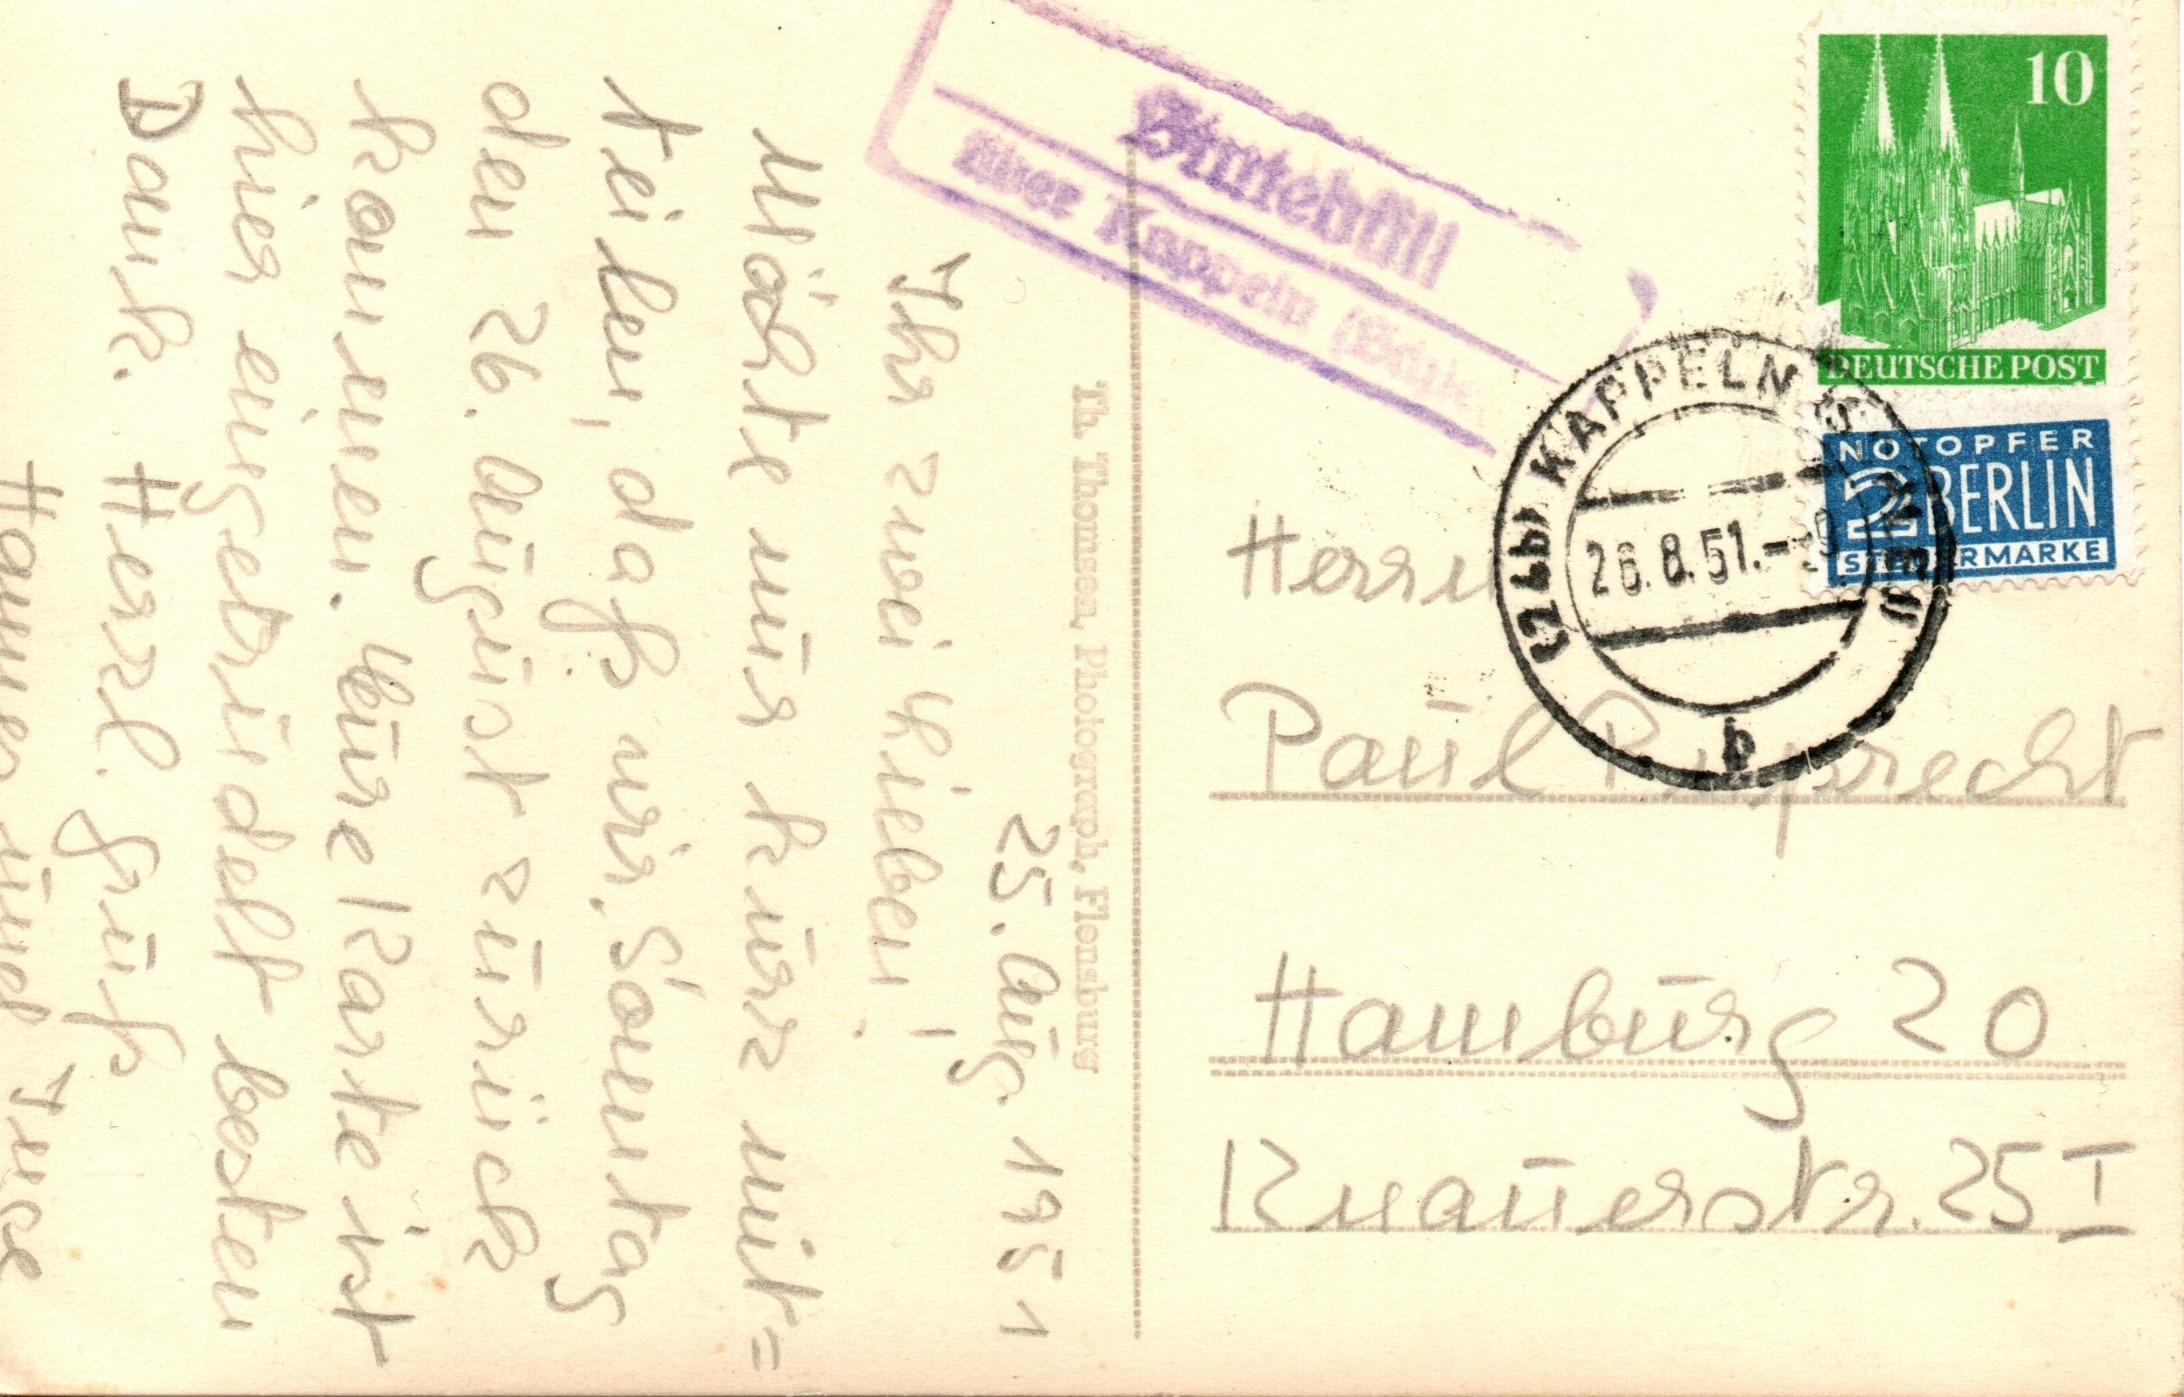 25. Aug. 1951
Ihr zwei Lieben!
Möchte nur kurz mit=
teilen, daß wir Sonntag
den 26. August zurück
kommen. Eure Karte ist
hier eingetrudelt besten
Dank. Herzl. Gruß
und Inge
Th. Thomsen, Photograph, Flensburg
über Kappeln
10
DEUTSCHE POST
NOTOPFER
2 BERLIN
STEUERMARKE
(24b) KAPPELN
26.8.51.
b
Herrn
Paul Ruprecht
Hamburg 20
Knauerstr. 25 I